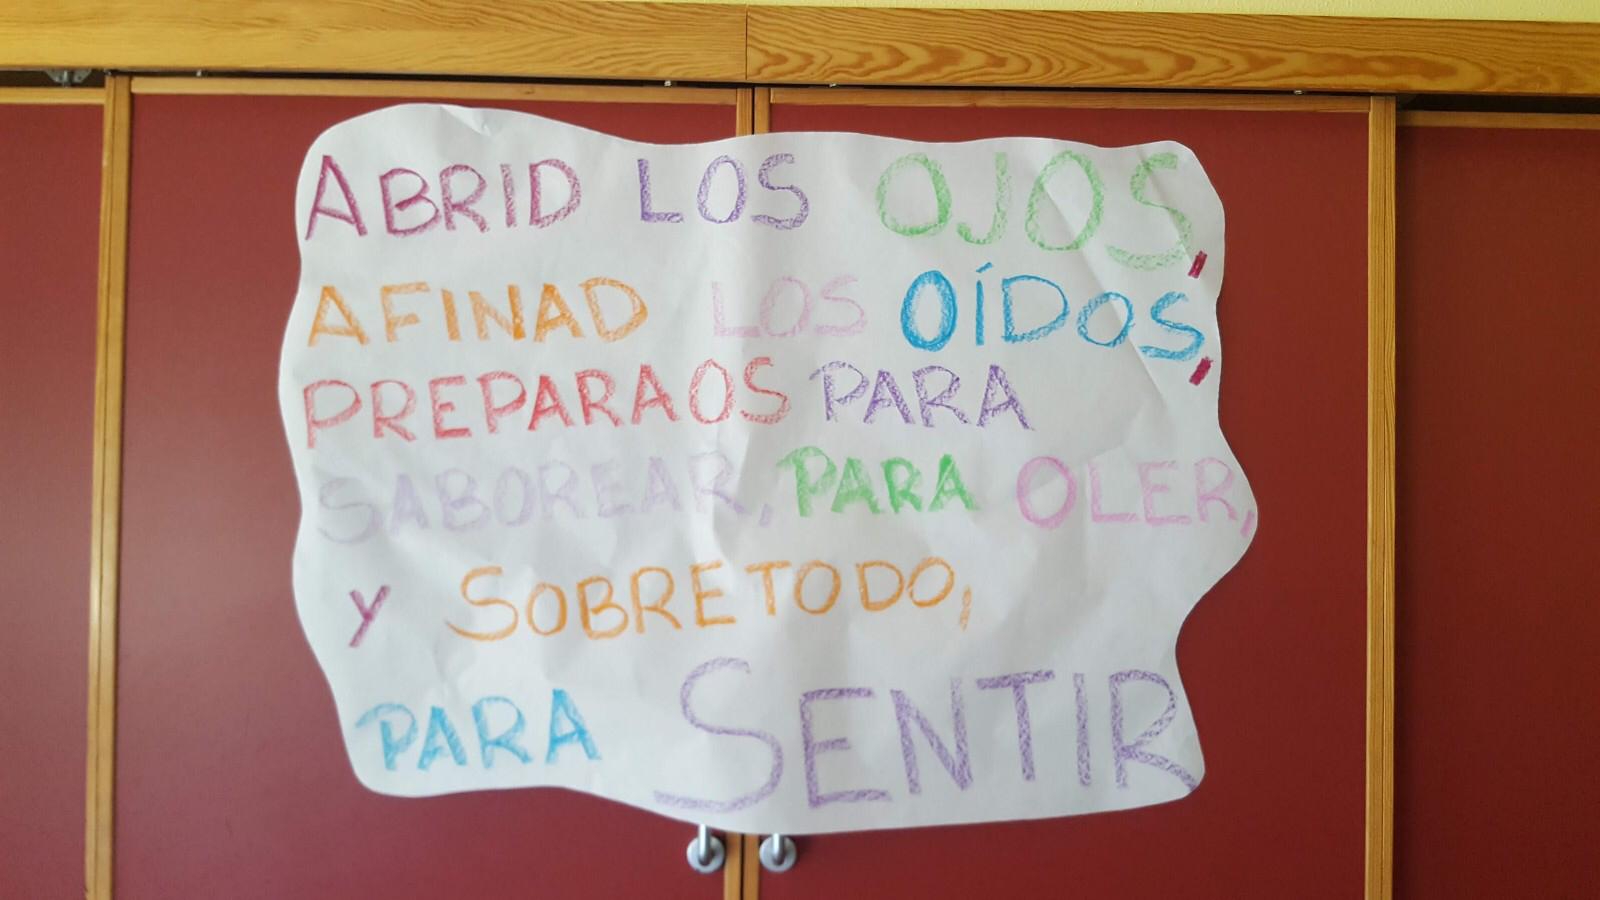 ABRID LOS OJOS,
AFINAD LOS OÍDOS,
PREPARAOS PARA
SABOREAR, PARA OLER,
Y SOBRETODO,
PARA SENTIR